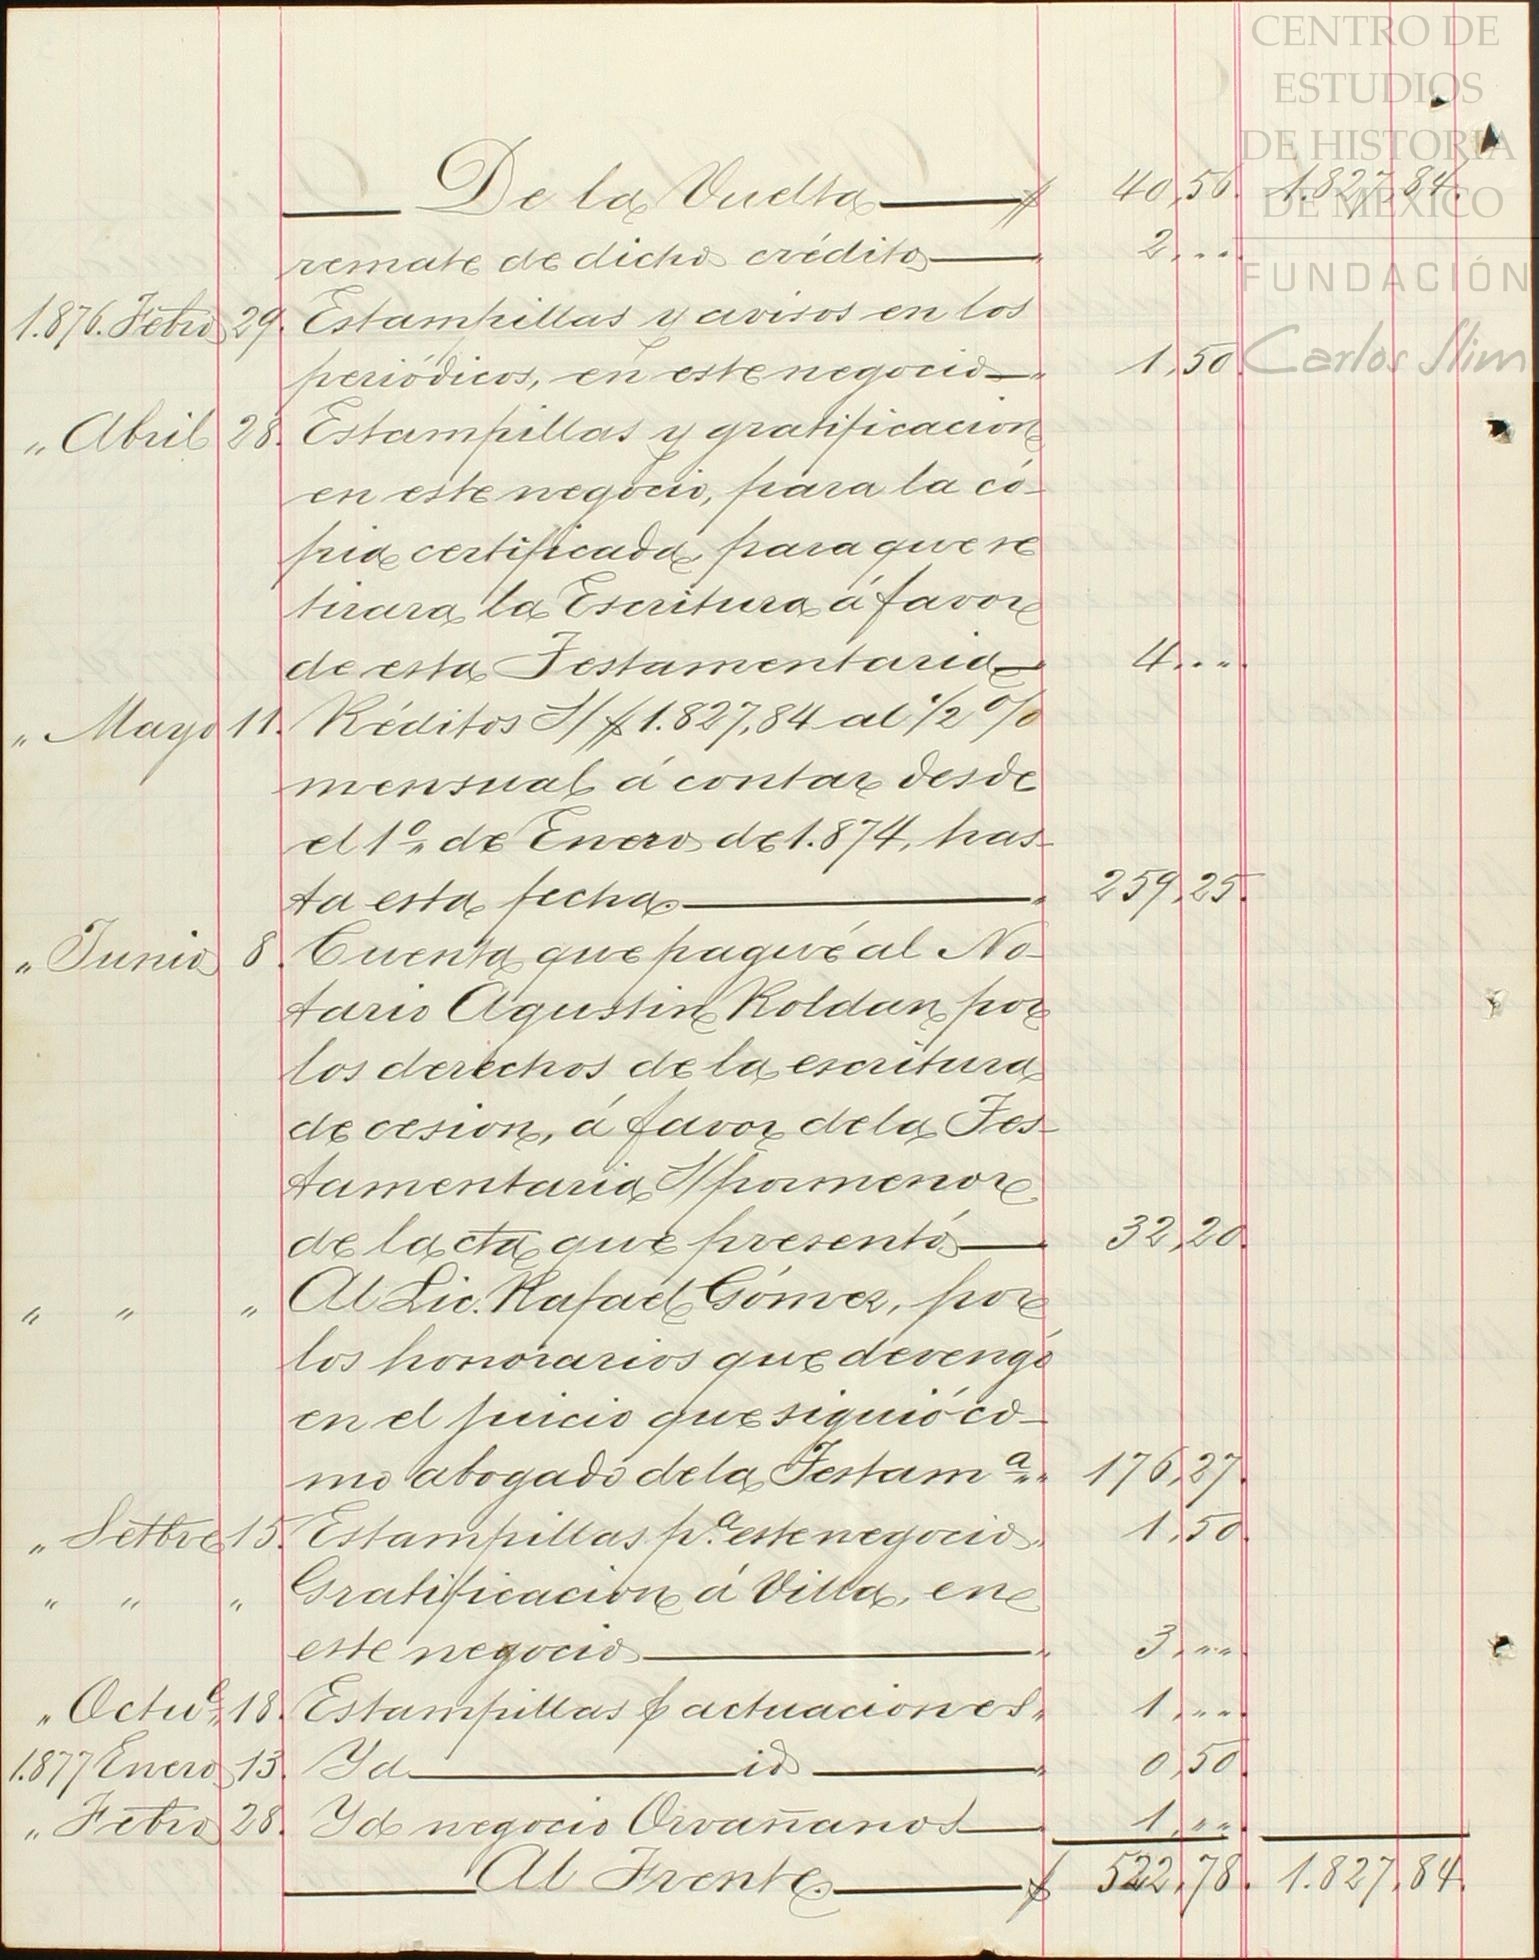 CENTRO DE
ESTUDIOS
DE HISTORIA
DE MÉXICO
FUNDACIÓN
Carlos Slim
De la Vuelta $ 40,56. 1.827,84.
remate de dicho crédito " 2,"".
1.876. Febro 29. Estampillas y avisos en los
periódicos, en este negocio " 1,50.
" Abril 28. Estampillas y gratificacion
en este negocio, para la có-
pia certificada, para que se
tirara la Escritura á favor
de esta Testamentaria " 4,"".
" Mayo 11. Réditos S/ $ 1.827,84 al ½ %
mensual á contar desde
el 1º de Enero de 1.874, has-
ta esta fecha. " 259,25.
" Junio 8. Cuenta que pagué al No-
tario Agustin Roldan por
los derechos de la escritura
de cesion, á favor de la Tes-
tamentaria S/ pormenor
de la cta que presentó " 32,20.
" " " Al Lic. Rafael Gómez, por
los honorarios que devengó
en el juicio que siguió co-
mo abogado de la Testamª " 176,27.
" Setbre 15. Estampillas pª este negocio " 1,50.
" " " Gratificacion á Villa, en
este negocio " 3,"".
" Octue 18. Estampillas p actuaciones " 1,"".
1.877 Enero 13. Yd id " 0,50.
" Febro 28. Yd negocio Orvañanos " 1,"".
Al Frente. $ 522,78. 1.827,84.